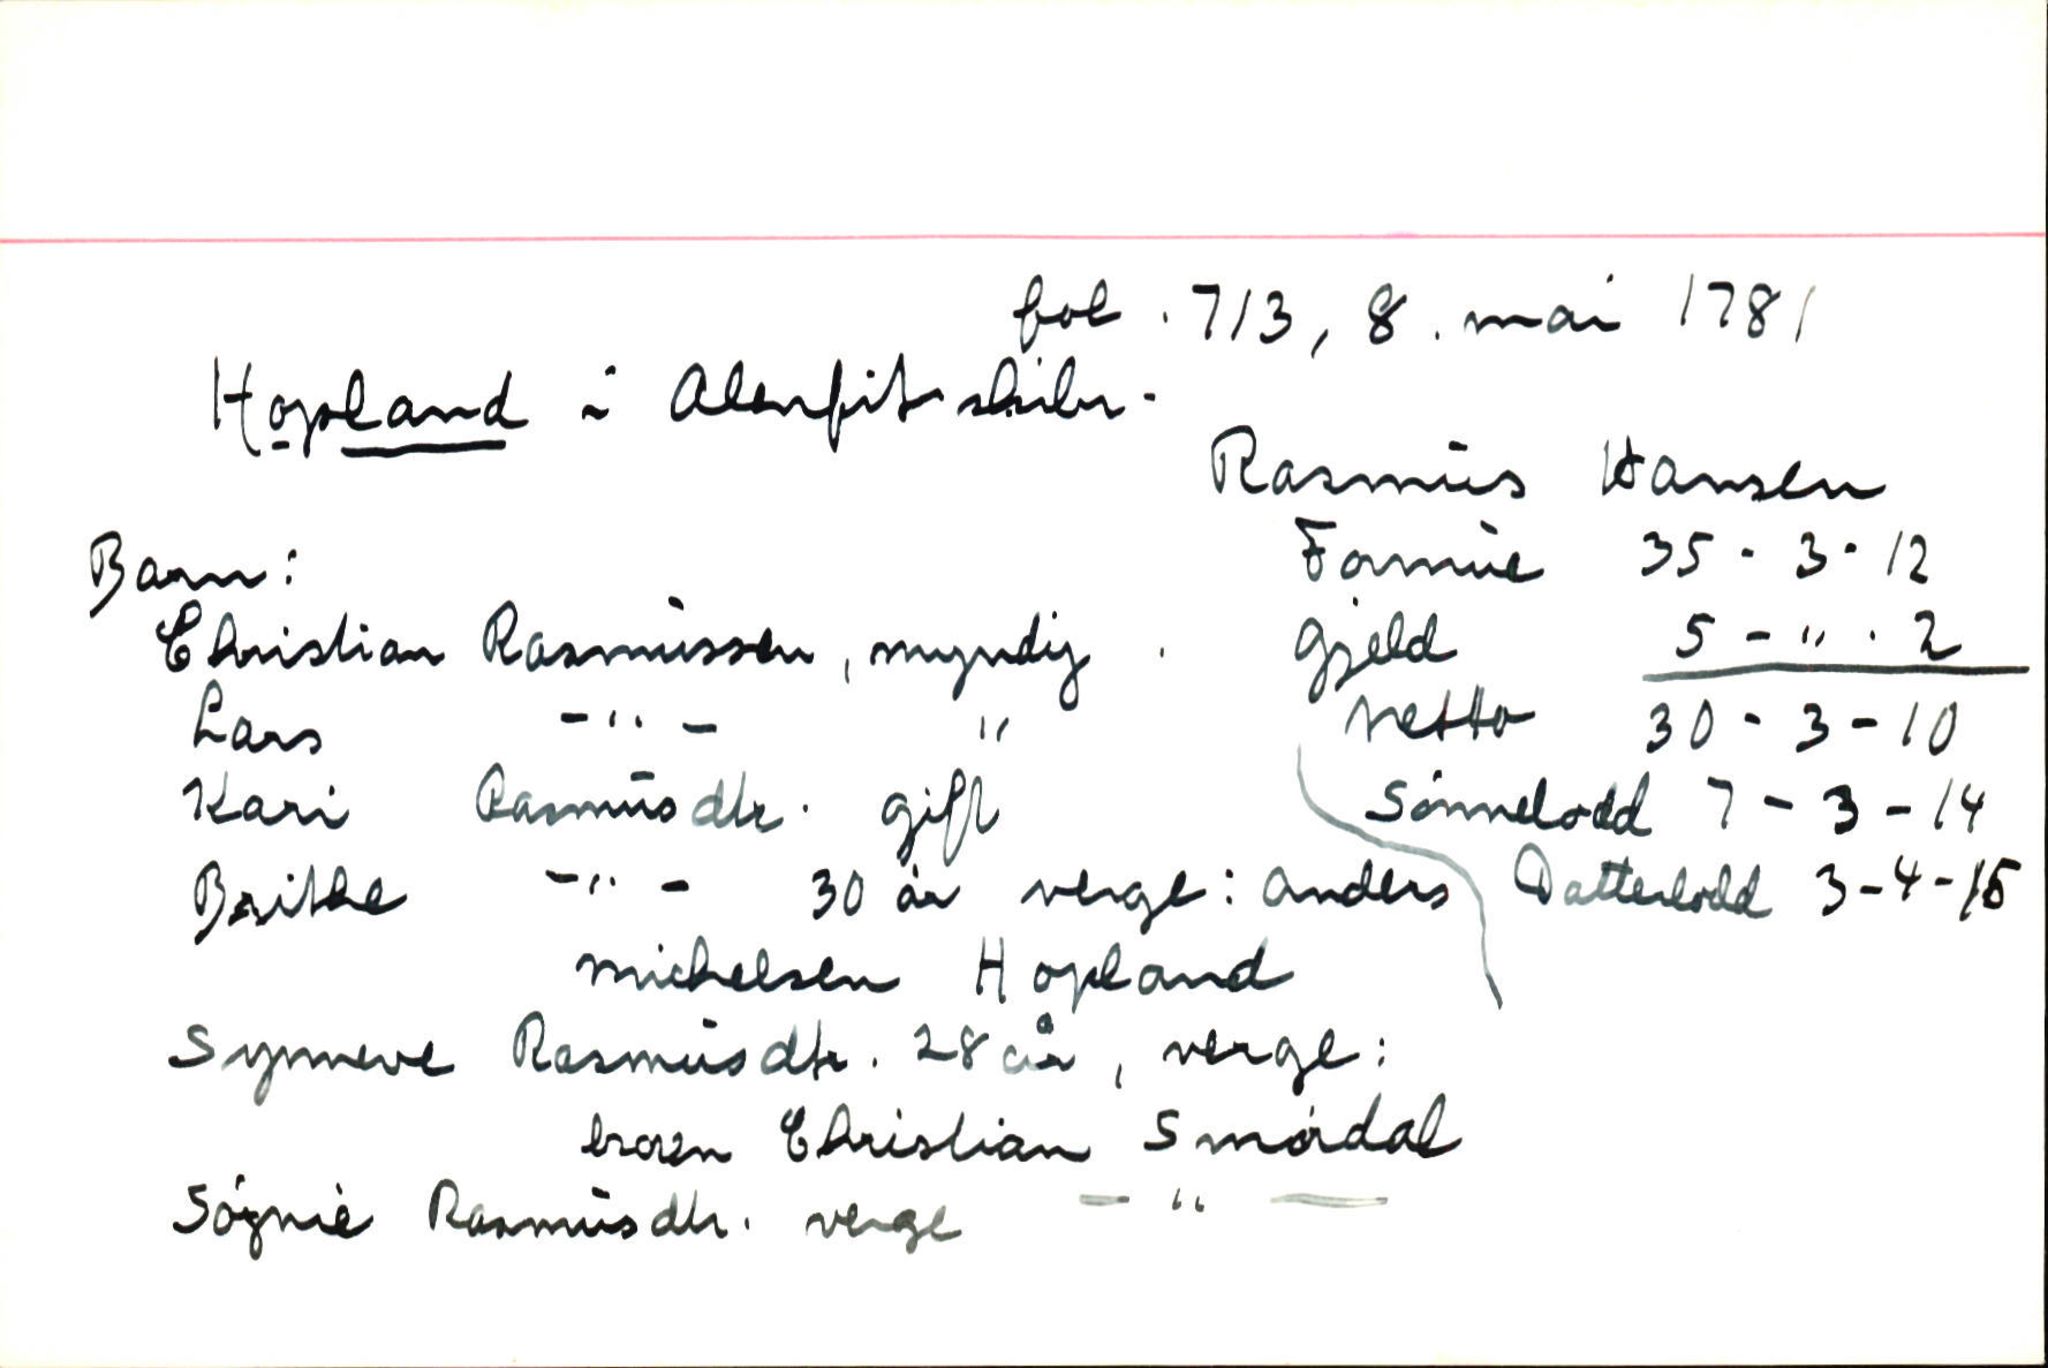 fol. 713, 8. mai 1781
Hopland i Alenfit skibr.
Rasmus Hansen
Barn:
Formue 35 - 3 - 12
Christian Rasmussen, myndig.
Gjeld 5 - " - 2
Lars - " - "
netto 30 - 3 - 10
Kari Rasmusdtr. gift
Sønnelodd 7 - 3 - 14
Brithe - " - 30 år verge: Anders
Datterlodd 3 - 4 - 15
Michelsen Hopland
Synneve Rasmusdtr. 28 år, verge:
broren Christian Smørdal
Søgnie Rasmusdtr. verge - " -